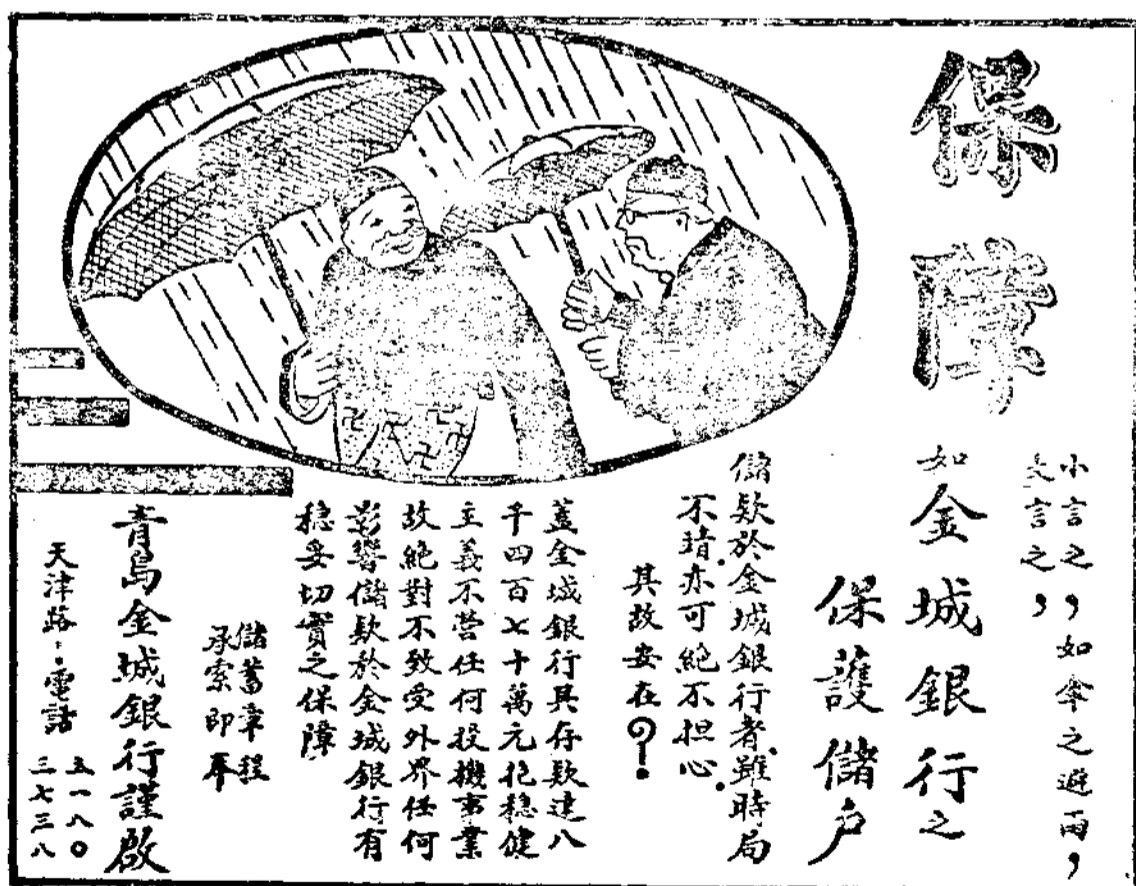 保障
小言之，如傘之避雨，
文言之，
如金城銀行之
保護儲户
儲欵於金城銀行者、雖時局
不靖亦可絶不担心．
其故安在？！
蓋金城銀行具存欵達八
千四百七十萬元抱穩健
主義不營任何投機事業
故絶對不致受外界任何
影響儲欵於金城銀行有
穩妥切實之保障
儲蓄章程
承索即奉
青島金城銀行謹啟
天津路．電話
五一八〇
三七三八